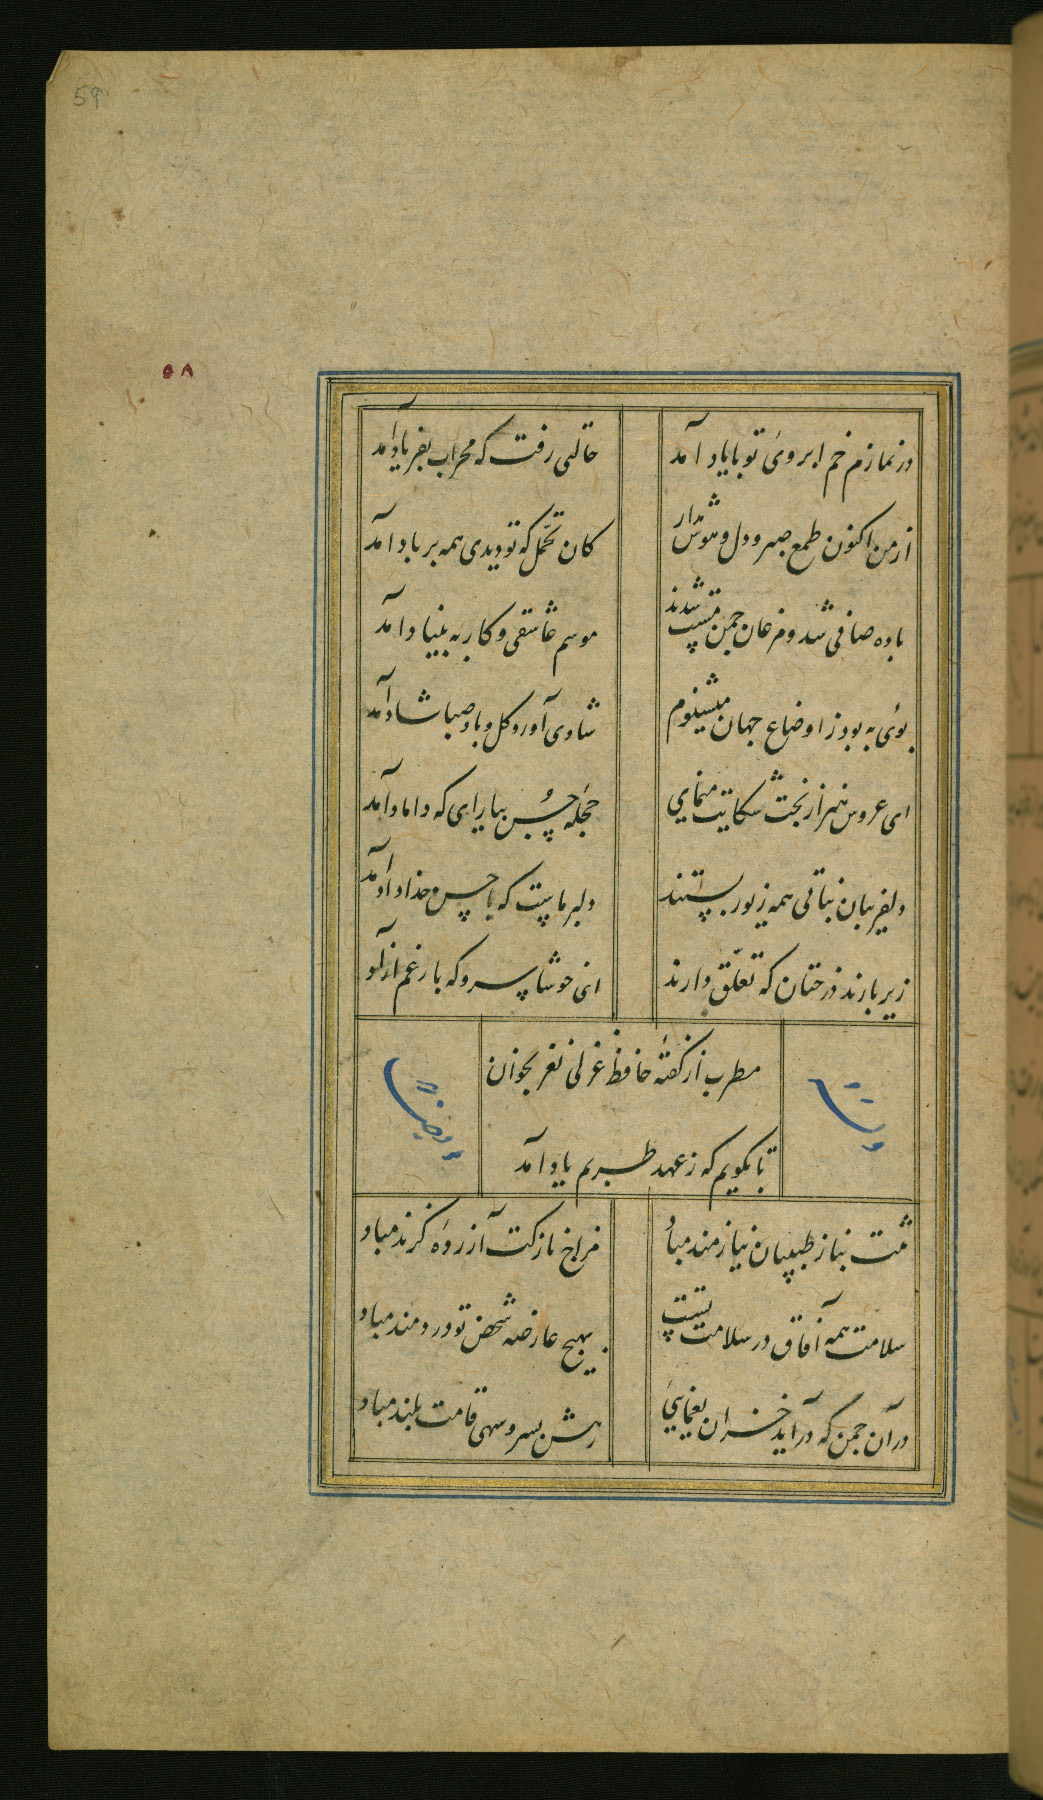 59
۵۸
در نمازم خم ابروی تو با یاد آمد
حالتی رفت که محراب بفریاد آمد
از من اکنون طمع صبر و دل و هوش مدار
کان تحمل که تو دیدی همه بر باد آمد
باده صافی شد و مرغان چمن مست شدند
موسم عاشقی و کار به بنیاد آمد
بوی بهبود ز اوضاع جهان میشنوم
شادی آورد گل و باد صبا شاد آمد
ای عروس هنر از بخت شکایت منمای
حجله حسن بیارای که داماد آمد
دلفریبان نباتی همه زیور بستند
دلبر ماست که با حسن خداداد آمد
زیر بارند درختان که تعلق دارند
ای خوشا سرو که بار غم آزاد
مطرب از گفته حافظ غزلی نغز بخوان
تا بگویم که ز عهد طربم یاد آمد
تنت بناز طبیبان نیازمند مباد
مزاج نازکت آزرده گزند مباد
سلامت همه آفاق در سلامت تست
بهیچ عارضه شخص تو دردمند مباد
در آن چمن که در آید خزان یغمایی
رهش بسرو سهی قامت بلند مباد